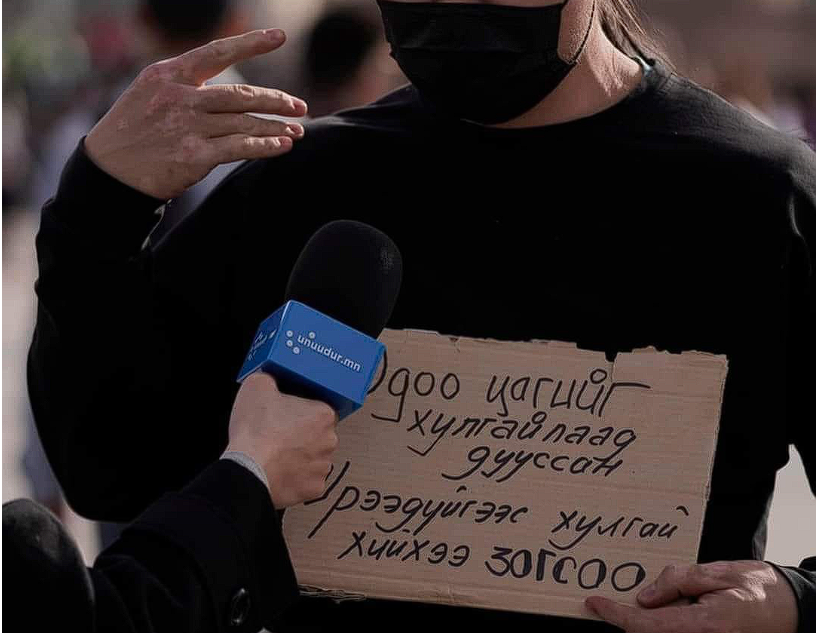 unuudur.mn
Одоо цагийг
хулгайлаад
дууссан
Ирээдүйгээс хулгай
хийхээ ЗОГСОО